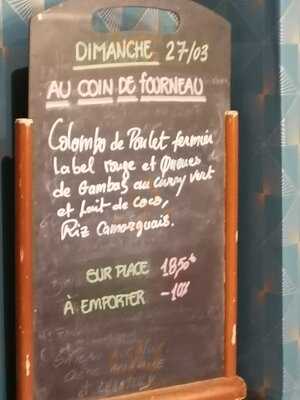 DIMANCHE 27/03
AU COIN DE FOURNEAU
Colombo de Poulet fermier
Label rouge et Queues
de Gambas au curry vert
et lait de coco,
Riz Camarguais.
SUR PLACE 18,50€
À EMPORTER -10%